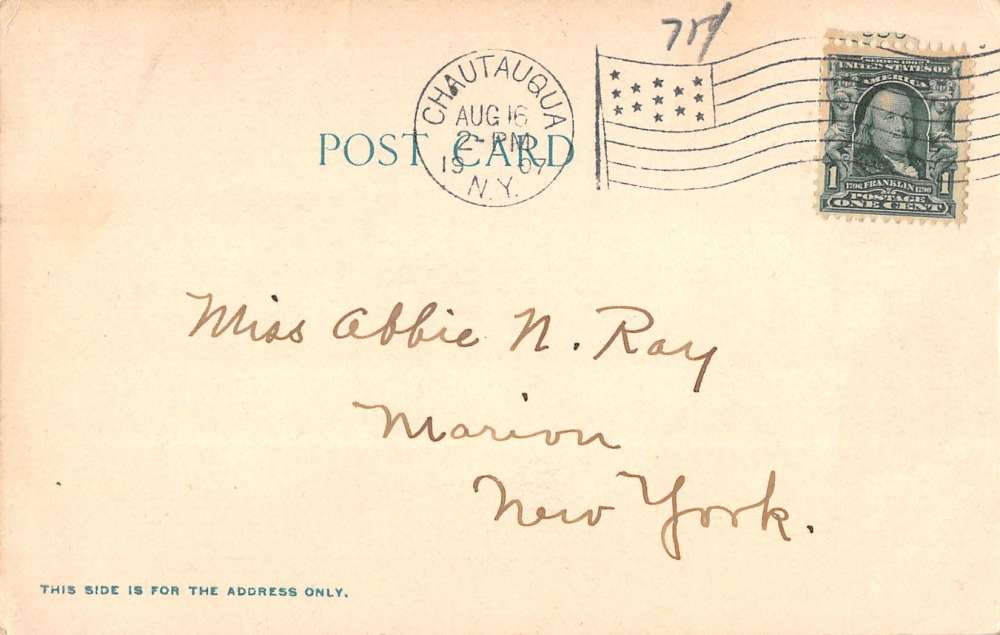 CHAUTAUQUA
AUG 16
2-PM
1907
N.Y.
POST CARD
SERIES 1902
UNITED STATES OF
AMERICA
1 1
1706 FRANKLIN 1790
POSTAGE
ONE CENT
Miss Abbie N. Ray
Marion
New York.
THIS SIDE IS FOR THE ADDRESS ONLY.